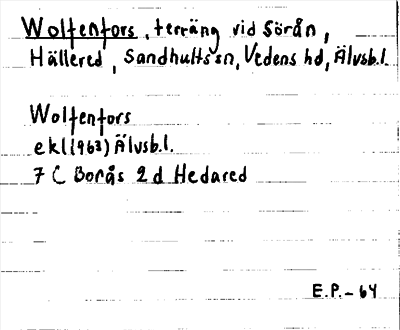 Wolfenfors, terräng vid Sörån,
Hällered, Sandhults sn, Vedens hd, Älvsb.l.
Wolfenfors
ekl(1963) Älvsb.l.
7 C Borås 2 d Hedared
E.P.-64